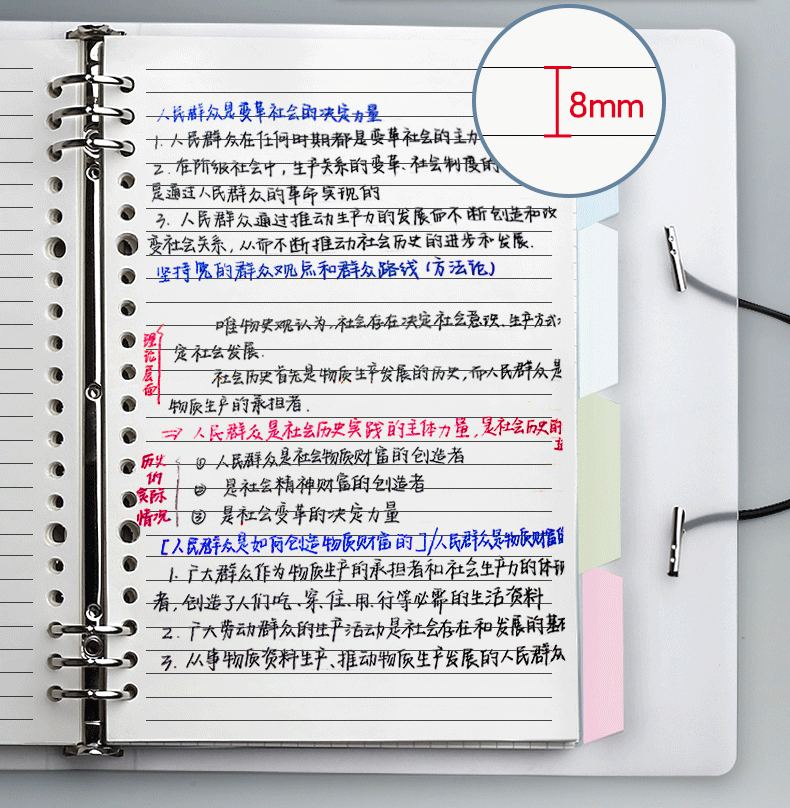 8mm
人民群众是变革社会的决定力量
1. 人民群众在任何时期都是变革社会的主力
2. 在阶级社会中, 生产关系的变革、社会制度的
是通过人民群众的革命实现的
3. 人民群众通过推动生产力的发展而不断创造和改
变社会关系, 从而不断推动社会历史的进步和发展.
坚持党的群众观点和群众路线 (方法论)
理论层面
唯物史观认为, 社会存在决定社会意识、生产方式
定社会发展.
社会历史首先是物质生产发展的历史, 而人民群众是
物质生产的承担者.
⇒ 人民群众是社会历史实践的主体力量, 是社会历史的
历史的实际情况
① 人民群众是社会物质财富的创造者
② 是社会精神财富的创造者
③ 是社会变革的决定力量
[人民群众是如何创造物质财富的]/人民群众是物质财富
1. 广大群众作为物质生产的承担者和社会生产力的体现
者, 创造了人们吃、穿、住、用、行等必需的生活资料
2. 广大劳动群众的生产活动是社会存在和发展的基
3. 从事物质资料生产、推动物质生产发展的人民群众